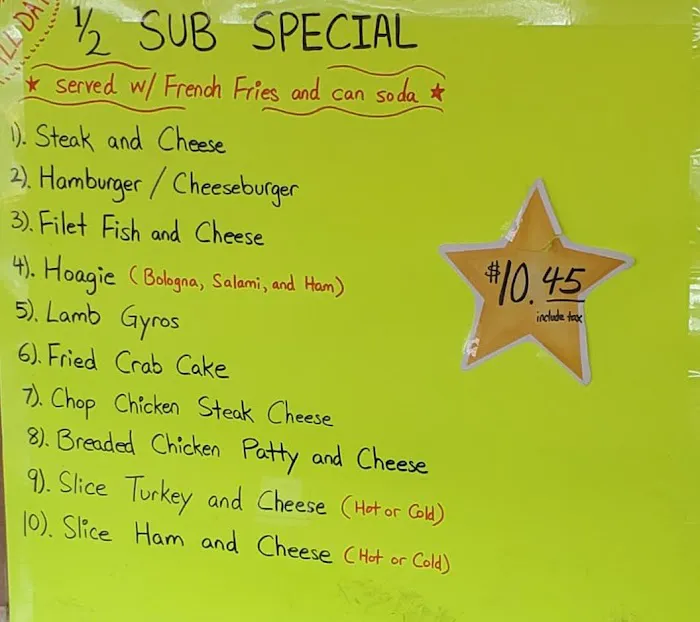 ALL DAY
1/2 SUB SPECIAL
★ served w/ French Fries and can soda ★
1). Steak and Cheese
2). Hamburger / Cheeseburger
3). Filet Fish and Cheese
4). Hoagie (Bologna, Salami, and Ham)
5). Lamb Gyros
6). Fried Crab Cake
7). Chop Chicken Steak Cheese
8). Breaded Chicken Patty and Cheese
9). Slice Turkey and Cheese (Hot or Cold)
10). Slice Ham and Cheese (Hot or Cold)
$10.45
include tax